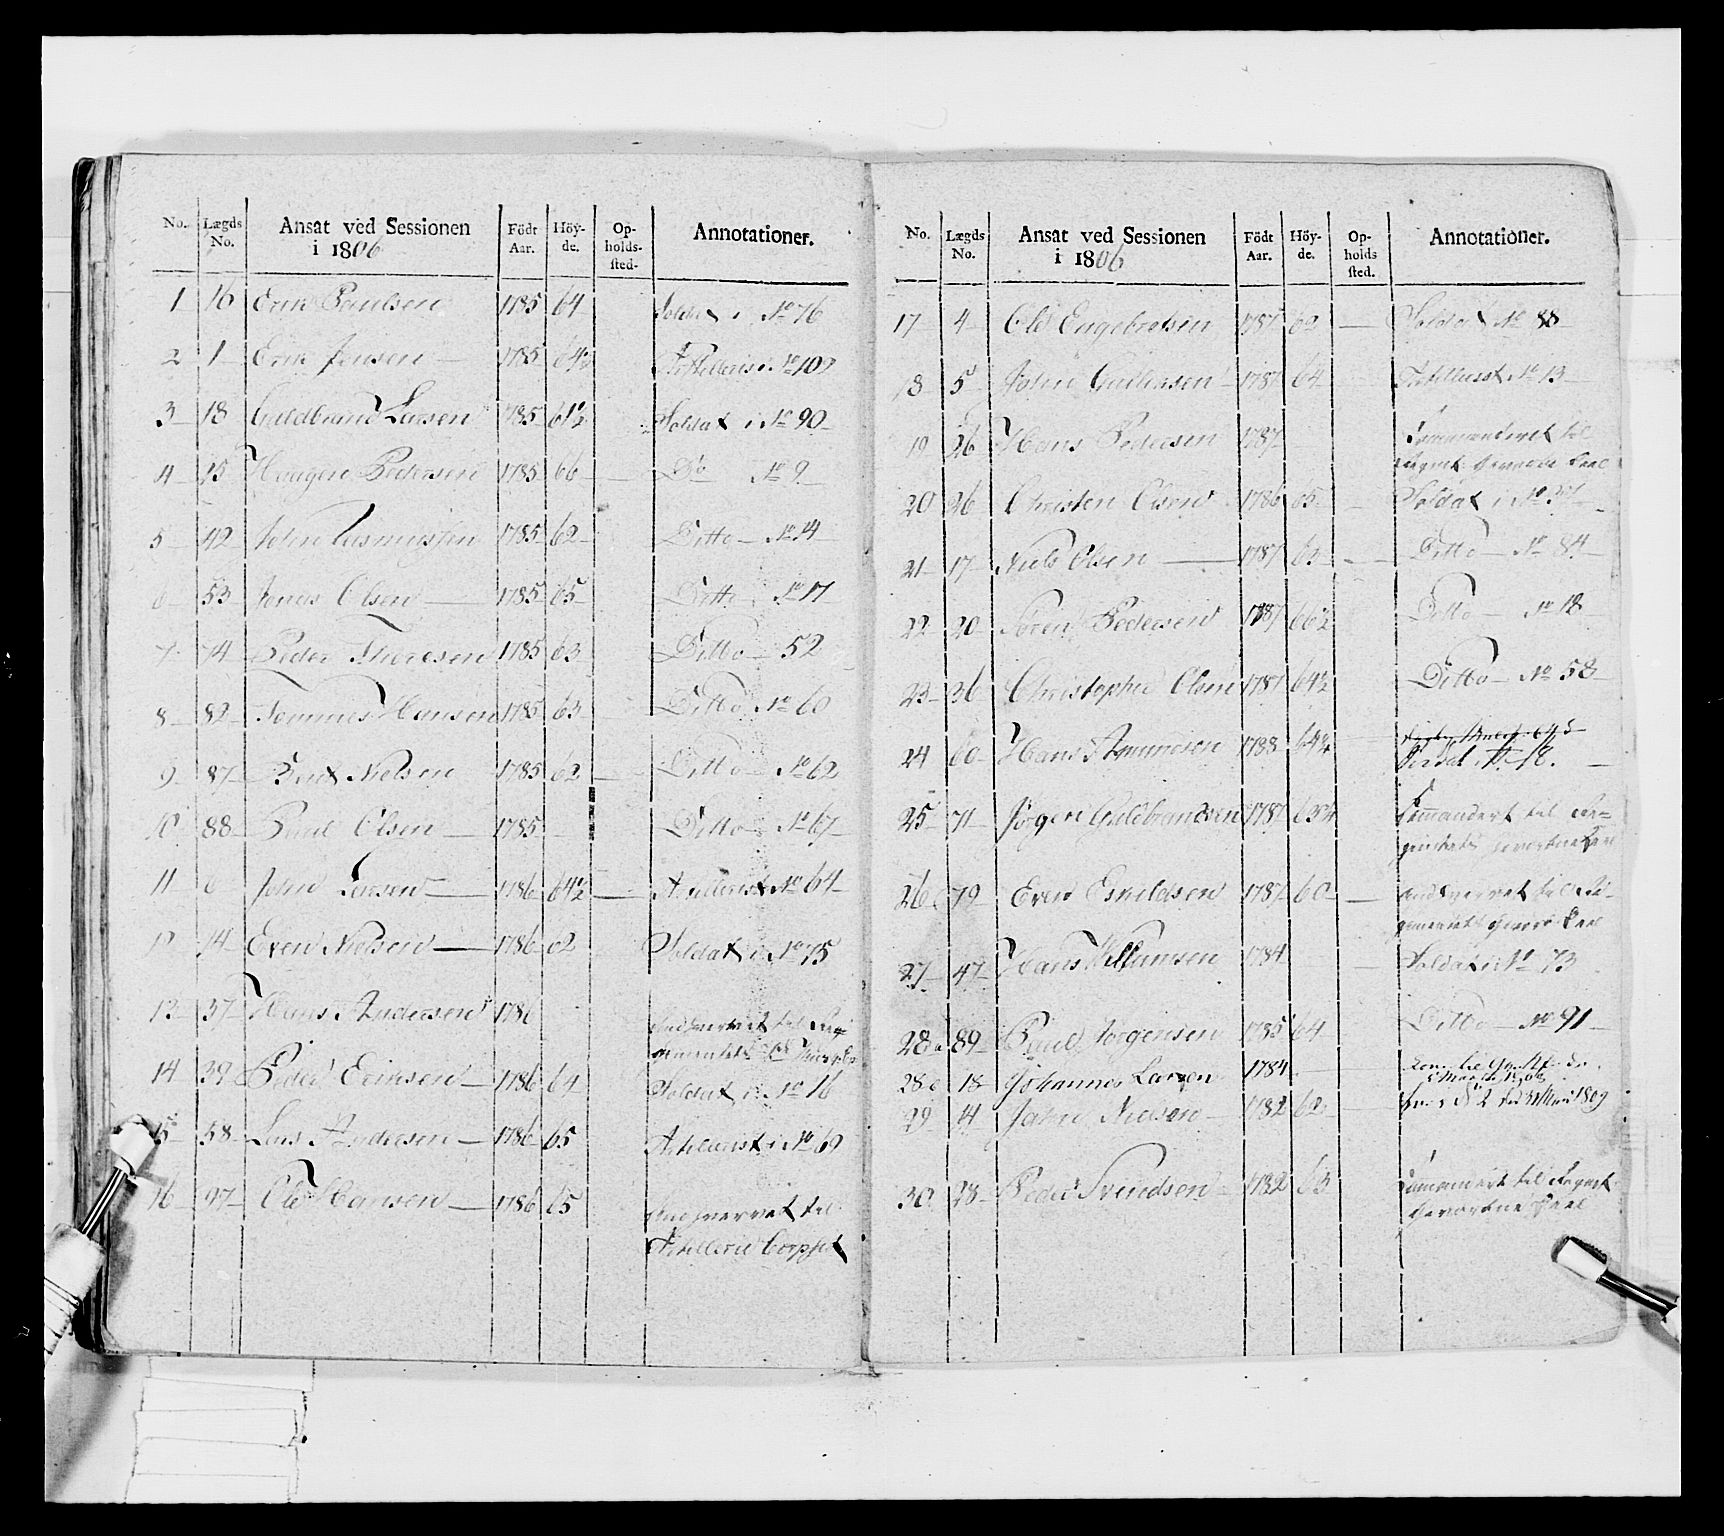 No. Lægds No. Ansat ved Sessionen i 1806 Födt Aar. Höy-de. Op-holds-sted. Annotationer.
1 16 Erik Paulsen 1785 64 Soldat i No 76
2 1 Erik Jensen 1785 64½ Artillerist No 109
3 18 Guldbrand Larsen 1785 61½ Soldat i No 90
4 15 Haagen Pedersen 1785 66 Do No 9
5 42 John Rasmussen 1785 62 Ditto No 14
6 53 Jonas Olsen 1785 65 Ditto No 17
7 74 Peder Thoresen 1785 63 Ditto 52
8 82 Tommes Hansen 1785 63 Ditto No 60
9 87 Knut Nielsen 1785 62 Ditto No 62
10 88 Paul Olsen 1785 Ditto No 67
11 6 John Larsen 1786 64½ Artillerist No 64
12 14 Even Nielsen 1786 62 Soldat i No 75
13 37 Hans Andersen 1786 Andhvervet til Re-
gimentets
14 39 Peder Eriksen 1786 64 Soldat i No 16
15 58 Lars Andersen 1786 65 Artillerist i No 69
16 97 Ole Hansen 1786 65 Andhvervet til
Artillerie Corpset
No. Lægds No. Ansat ved Sessionen i 1806 Födt Aar. Höy-de. Op-holds sted. Annotationer.
17 4 Ole Engebretsen 1787 62 Soldat No 88
18 5 John Gulbransen 1787 64 Artillerist No 13
19 26 Hans Pedersen 1787 Commanderet til
Regmts Hervorbne
20 26 Christen Olsen 1786 65 Soldat i No 37
21 17 Niels Olsen 1787 62 Ditto No 84
22 20 Søren Pedersen 1787 66½ Ditto No 18
23 36 Christopher Olsen 1787 64½ Ditto No 58
24 60 Hans Amundsen 1788 64¾
Soldat No 18.
25 71 Jørgen Guldbrandsen 1787 63¾ Commandert til Re-
gimentets
26 79 Even Eskildsen 1787 60 Andhvervet til Re-
gimentets
27 47 Hans Willumsen 1784 Soldat i No 73
28 a 89 Paul Jørgensen 1785 64 Ditto No 91
28 b 18 Johannes Larsen 1784
29 14 John Nielsen 1782 62 1809
30 28 Peder Svendsen 1782 63 Commandert til Regmts